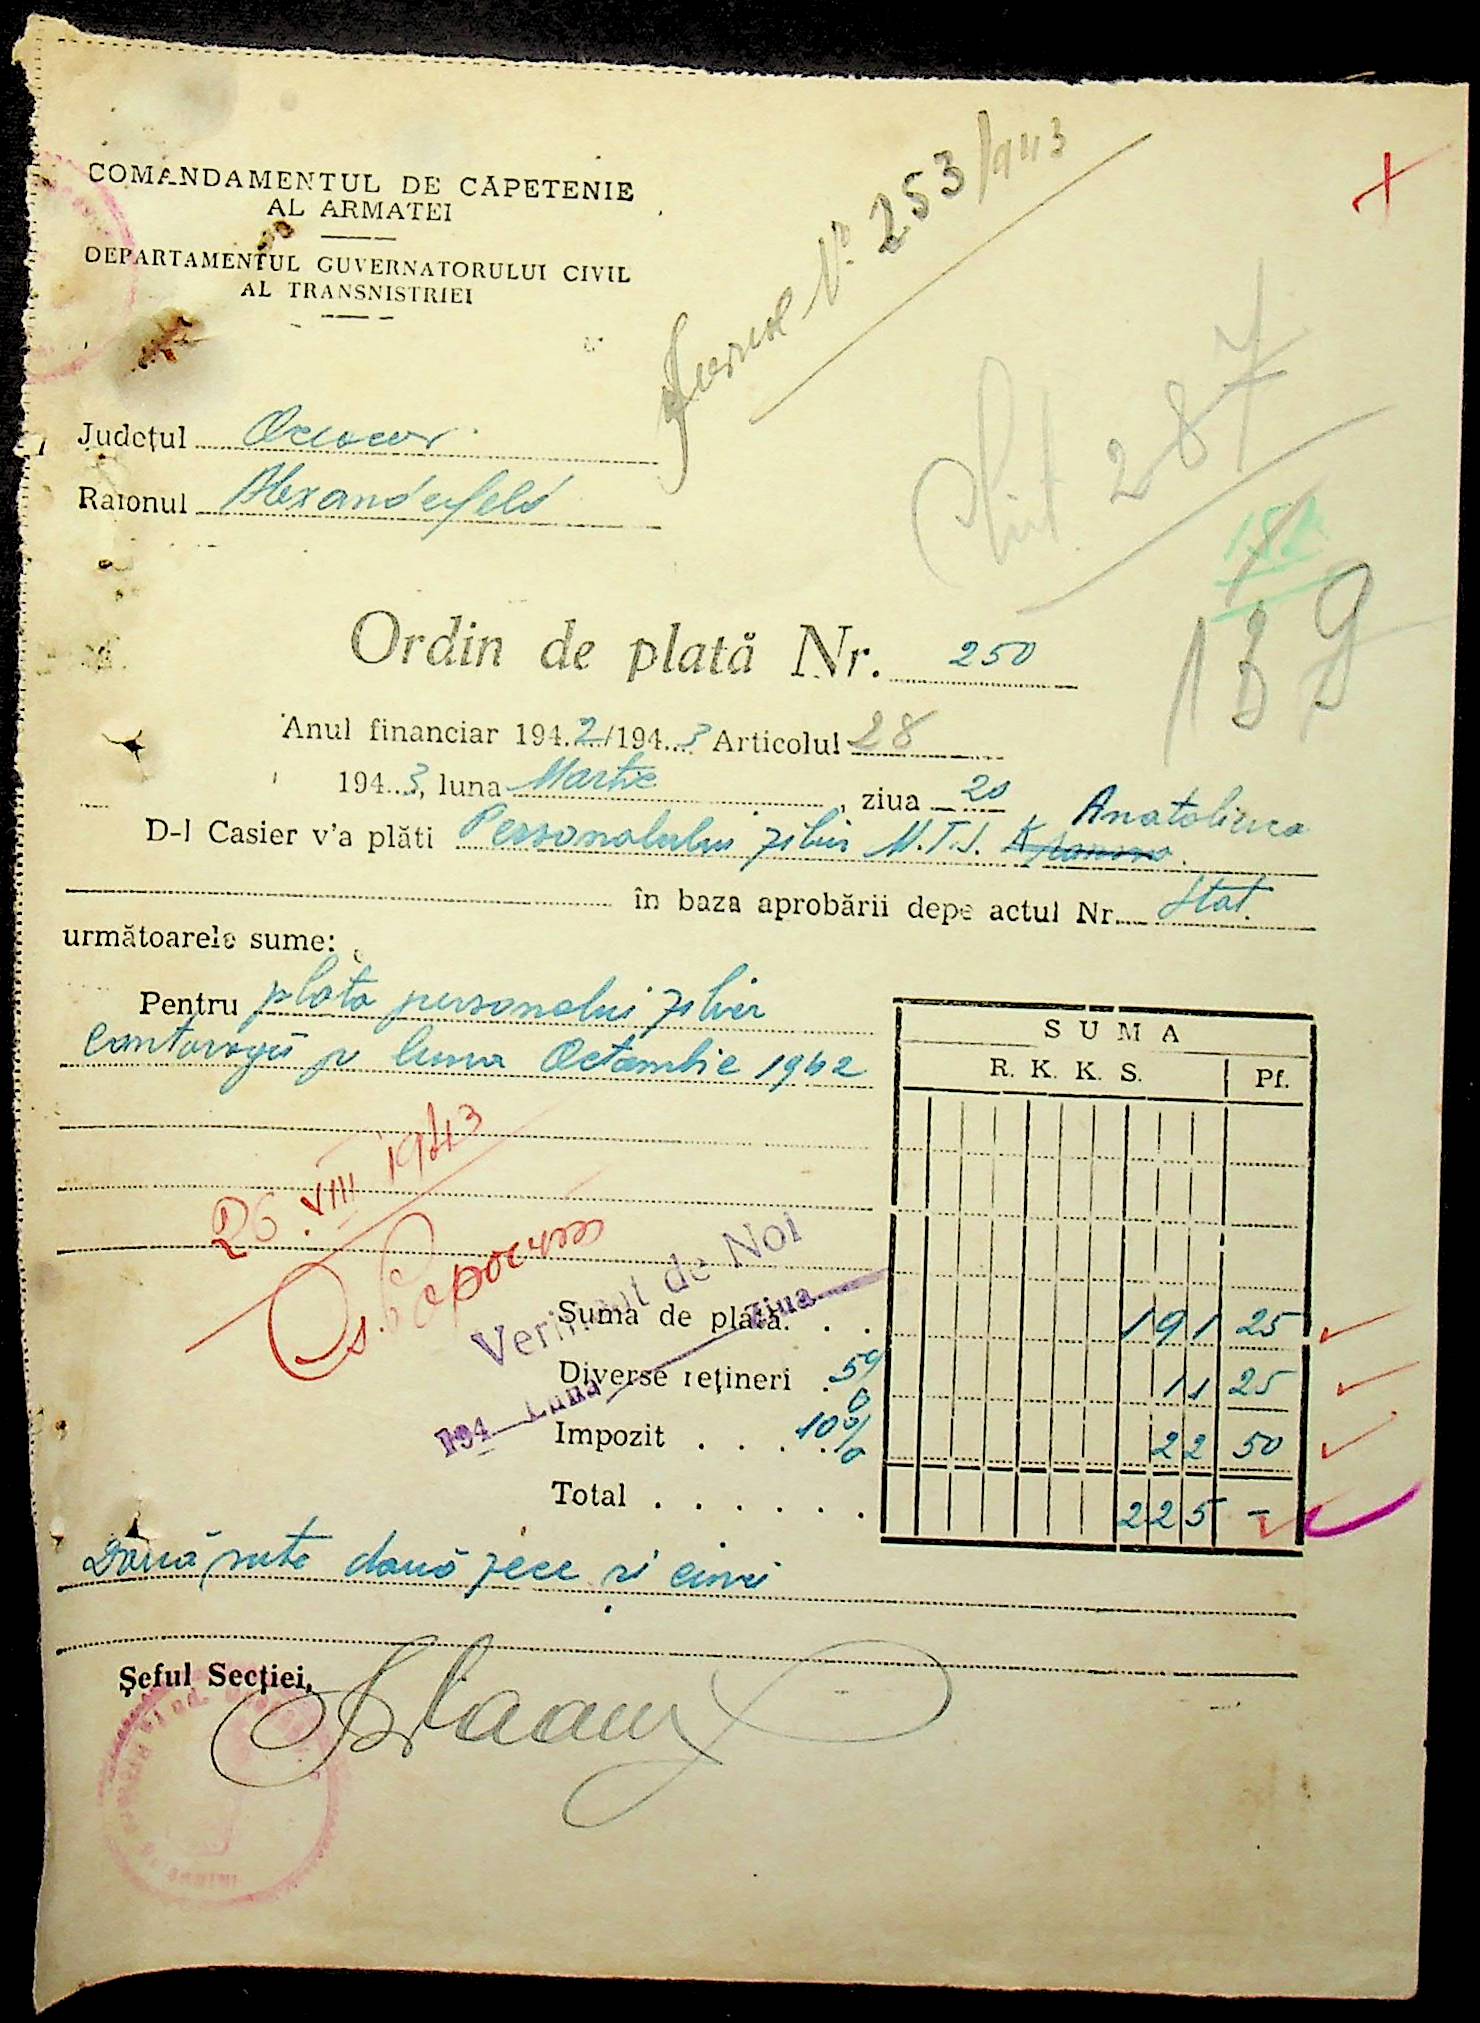 COMANDAMENTUL DE CĂPETENIE
AL ARMATEI
DEPARTAMENTUL GUVERNATORULUI CIVIL
AL TRANSNISTRIEI
Jurnal Nº 253/943
Chit. 287
Județul Oceacov
Raionul Alexanderfeld
152
139
Ordin de plată Nr. 250
Anul financiar 1942/1943 Articolul 28
1943, luna Martie, ziua 20
D-l Casier v'a plăti Personalului zilier M.T.S. Anatolievca
în baza aprobării depe actul Nr. Stat.
următoarele sume:
Pentru plata personalui zilier
p luna Octombie 1942
SUMA
R. K. K. S. Pf.
26.VIII 1943
Verificat de Noi
194 Luna Ziua
Suma de plată. . . 191 25
Diverse rețineri . 5% 11 25
Impozit . . . . . 10% 22 50
Total . . . . . . . 225 –
Două sute două zece și cinci
Șeful Secției,